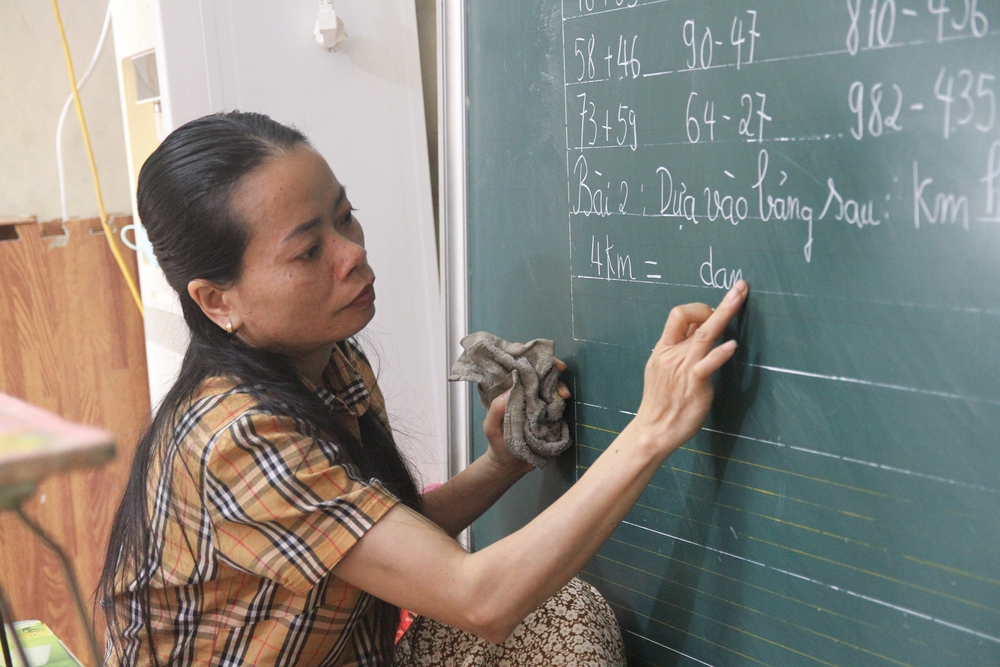 58 + 46 90 - 47 810 - 456
73 + 59 64 - 27 982 - 435
Bài 2 : Dựa vào bảng sau : Km
4Km = dam